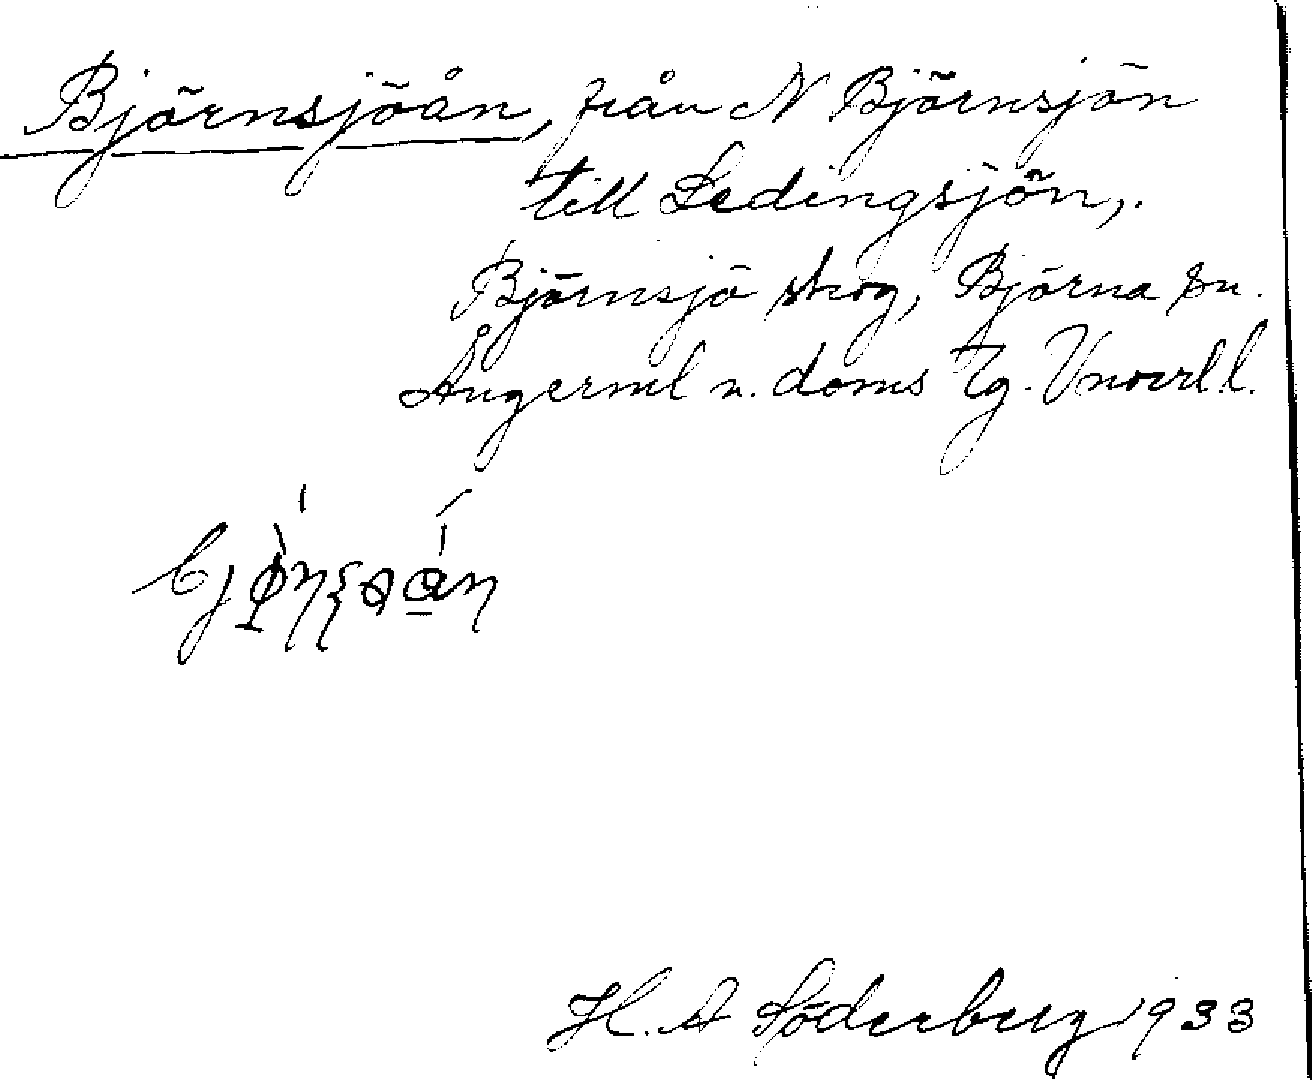 Björnsjöån, från N Björnsjön
till Ledingsjön,.
Björnsjö skog, Björna sn.
Ångerml n. doms Tg. Vnorrl l.
H. A Söderberg 1933